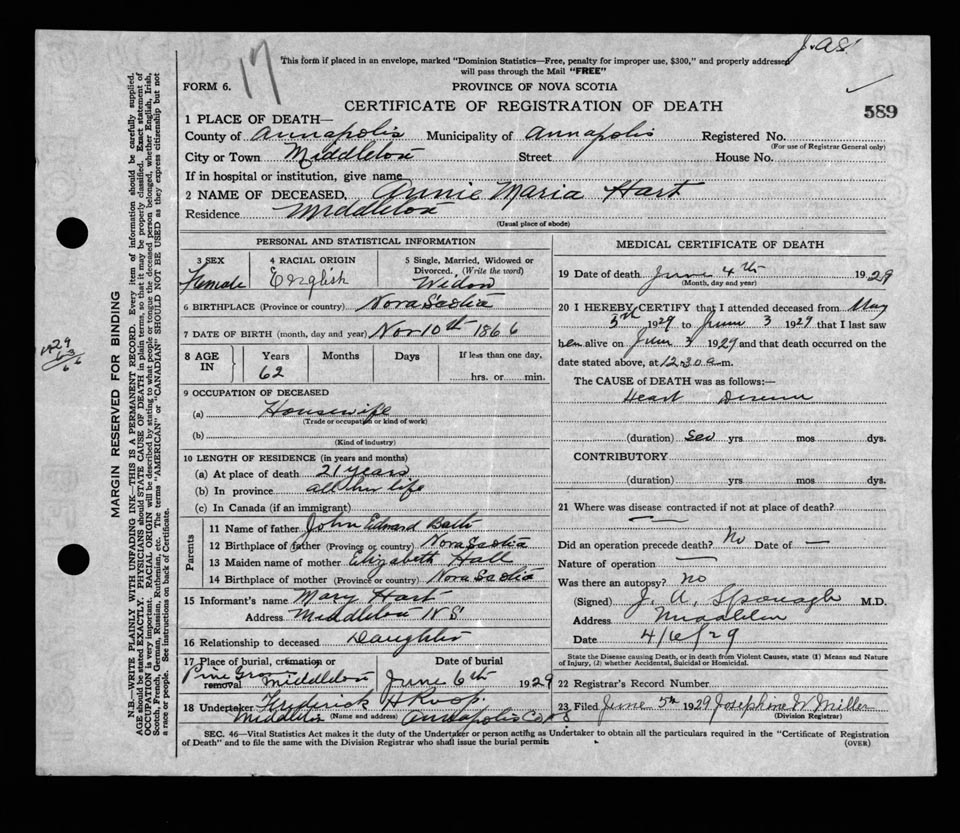 J.A.S.
17
This form if placed in an envelope, marked "Dominion Statistics—Free, penalty for improper use, $300," and properly addressed
will pass through the Mail "FREE"
FORM 6. PROVINCE OF NOVA SCOTIA
CERTIFICATE OF REGISTRATION OF DEATH 589
1 PLACE OF DEATH—
County of Annapolis Municipality of Annapolis Registered No.
(For use of Registrar General only)
City or Town Middleton Street House No.
If in hospital or institution, give name
2 NAME OF DECEASED, Annie Maria Hart
Residence Middleton
(Usual place of abode)
PERSONAL AND STATISTICAL INFORMATION
3 SEX 4 RACIAL ORIGIN 5 Single, Married, Widowed or
Divorced, (Write the word)
Female English Widow
6 BIRTHPLACE (Province or country) Nova Scotia
7 DATE OF BIRTH (month, day and year) Nov 10th 1866
8 AGE IN Years Months Days If less than one day,
62 hrs. or min.
9 OCCUPATION OF DECEASED
(a) Housewife
(Trade or occupation or kind of work)
(b)
(Kind of industry)
10 LENGTH OF RESIDENCE (in years and months)
(a) At place of death 21 years
(b) In province all her life
(c) In Canada (if an immigrant)
Parents
11 Name of father John Edward
12 Birthplace of father (Province or country) Nova Scotia
13 Maiden name of mother Elizabeth Hall
14 Birthplace of mother (Province or country) Nova Scotia
15 Informant's name Mary Hart
Address Middleton N S
16 Relationship to deceased Daughter
17 Place of burial, cremation or removal Date of burial
Pine Grove Middleton June 6th 1929
18 Undertaker Frederick H Roop
Middleton (Name and address) Annapolis Co N S
MEDICAL CERTIFICATE OF DEATH
19 Date of death June 4th 1929
(Month, day and year)
20 I HEREBY CERTIFY that I attended deceased from May
5th 1929 to June 3 1929 that I last saw
her alive on June 3 1929 and that death occurred on the
date stated above, at 12.30 a m.
The CAUSE of DEATH was as follows:—
Heart Disease
(duration) Sev yrs. mos dys.
CONTRIBUTORY
(duration) yrs. mos. dys.
21 Where was disease contracted if not at place of death?
Did an operation precede death? No Date of —
Nature of operation —
Was there an autopsy? no
(Signed) J. A. Sponagle M.D.
Address Middleton
Date 4/6/29
State the Disease causing Death, or in death from Violent Causes, state (1) Means and Nature
of Injury, (2) whether Accidental, Suicidal or Homicidal.
22 Registrar's Record Number
23 Filed June 5th 1929 Josephine W Miller
(Division Registrar)
SEC. 46—Vital Statistics Act makes it the duty of the Undertaker or person acting as Undertaker to obtain all the particulars required in the "Certificate of Registration
of Death" and to file the same with the Division Registrar who shall issue the burial permit.
(OVER)
MARGIN RESERVED FOR BINDING
N.B.—WRITE PLAINLY WITH UNFADING INK—THIS IS A PERMANENT RECORD. Every item of information should be carefully supplied.
AGE should be stated EXACTLY. PHYSICIANS should STATE CAUSE OF DEATH in plain terms, so that it may be properly classified. Exact statement of
OCCUPATION is very important. RACIAL ORIGIN will be described by stating to what people or tongue the deceased person belonged, whether English, Irish,
Scotch, French, German, Russian, Ruthenian, etc. The terms "AMERICAN" or "CANADIAN" SHOULD NOT BE USED as they express citizenship but not
a race or people. See instructions on back of Certificate.
1929
63
66